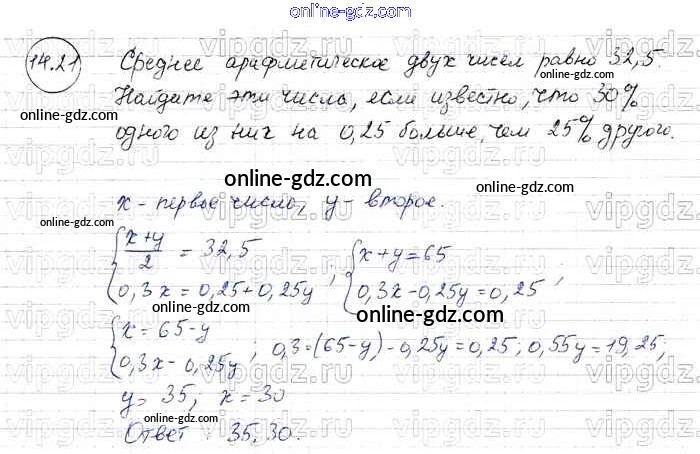 online-gdz.com
14.21 Среднее арифметическое двух чисел равно 32,5.
online-gdz.com
Найдите эти числа, если известно, что 30%
одного из них на 0,25 больше, чем 25% другого.
online-gdz.com
online-gdz.com
online-gdz.com
x - первое число, y - второе.
online-gdz.com
{ (x+y)/2 = 32,5 ; { x+y=65 ;
0,3x = 0,25+0,25y 0,3x-0,25y=0,25
online-gdz.com
online-gdz.com
{ x = 65-y
0,3x - 0,25y ; 0,3·(65-y)-0,25y=0,25; 0,55y=19,25;
online-gdz.com
y= 35, x = 30
online-gdz.com
online-gdz.com
Ответ : 35,30.
online-gdz.com
vipgdz.com